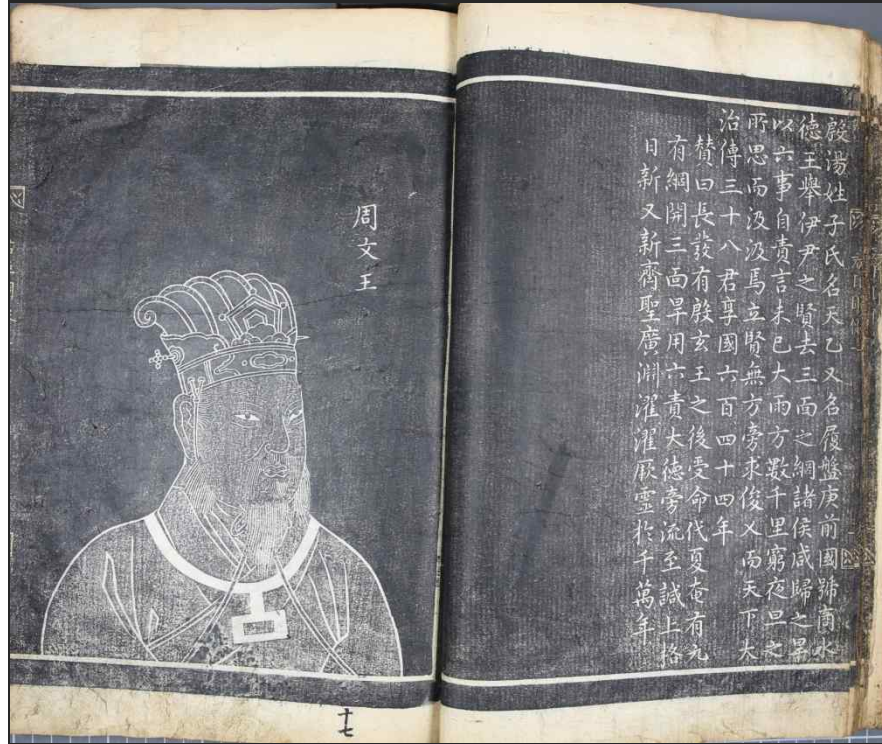 殷湯姓子氏名天乙又名履盤庚前國號商水
德王舉伊尹之賢去三面之網諸侯咸歸之旱
以六事自責言未已大雨方數千里窮夜旦之
所思而汲汲焉立賢無方旁求俊乂而天下大
治傳三十八君享國六百四十四年
贊曰長發有殷玄王之後受命代夏奄有九
有網開三面旱用六責大德旁流至諴上格
日新又新齊聖廣淵濯濯厥靈於千萬年
周文王
十七